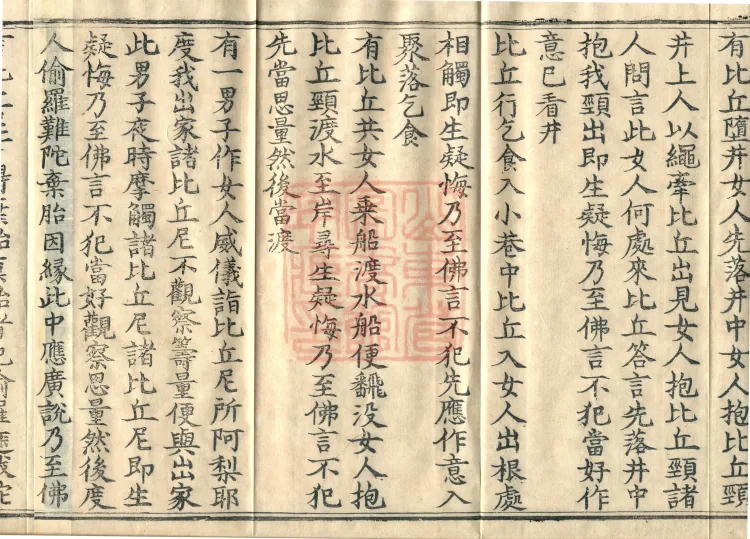 有比丘墮井女人先落井中女人抱比丘頸
井上人以繩牽比丘出見女人抱比丘頸諸
人問言此女人何處來比丘答言先落井中
抱我頸出即生疑悔乃至佛言不犯當好作
意已看井
比丘行乞食入小巷中比丘入女人出根處
相觸即生疑悔乃至佛言不犯先應作意入
聚落乞食
有比丘共女人乗船渡水船便飜没女人抱
比丘頸渡水至岸尋生疑悔乃至佛言不犯
先當思量然後當渡
有一男子作女人威儀詣比丘尼所阿梨耶
度我出家諸比丘尼不觀察籌量便與出家
此男子夜時摩觸諸比丘尼諸比丘尼即生
疑悔乃至佛言不犯當好觀察思量然後度
人偷羅難陀棄胎因縁此中應廣說乃至佛